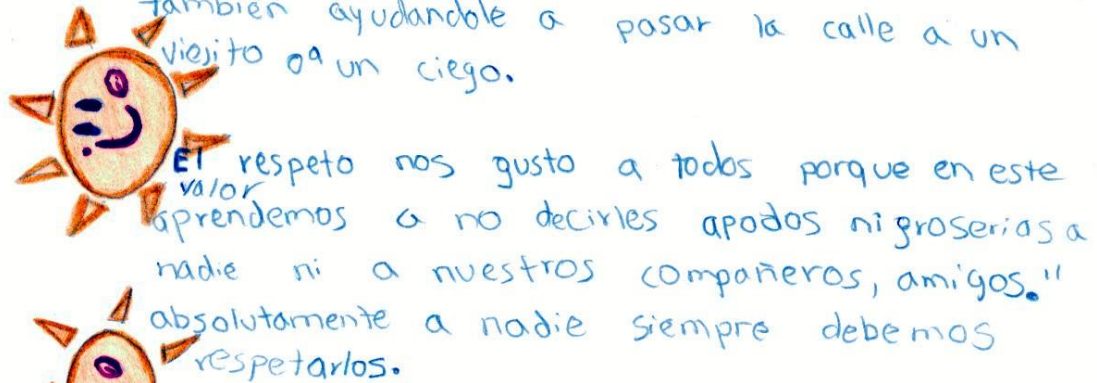 También ayudandole a pasar la calle a un
viejito o a un ciego.
El respeto nos gusto a todos porque en este
valor
aprendemos a no decirles apodos ni groserias a
nadie ni a nuestros compañeros, amigos."
absolutamente a nadie siempre debemos
respetarlos.